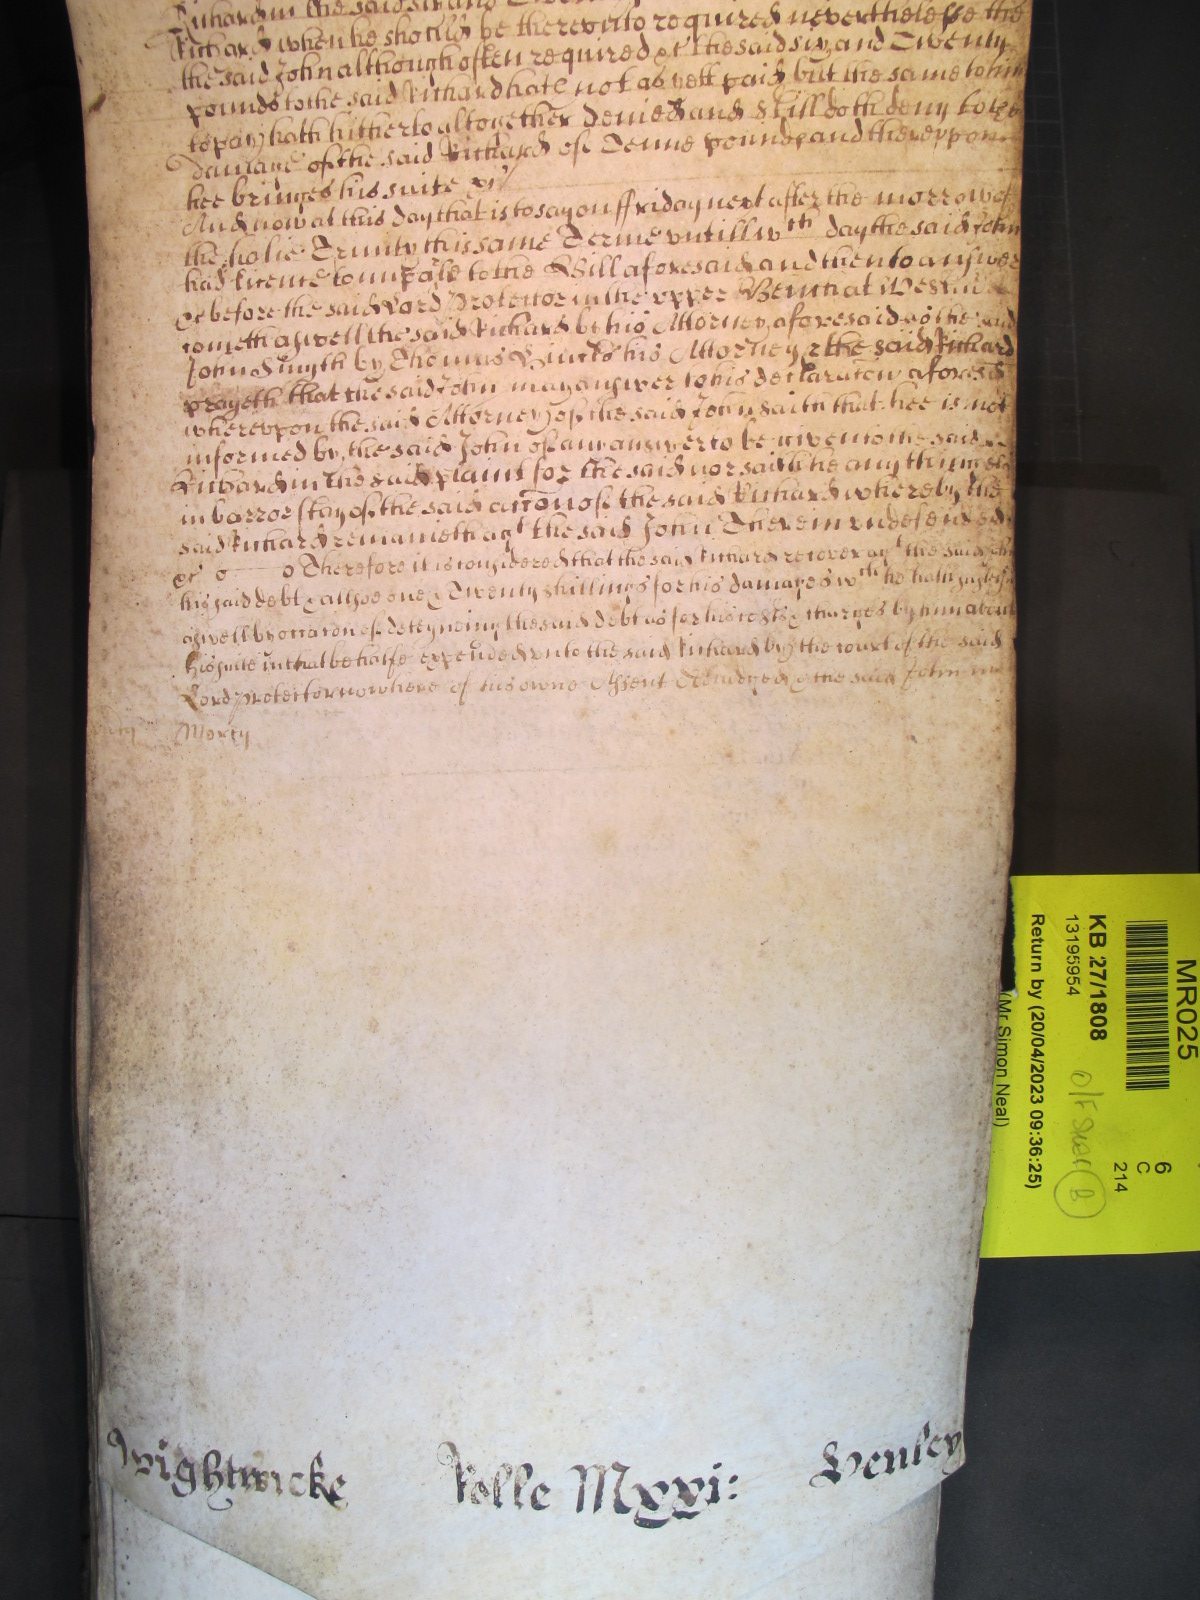 Richard in the said six and Twenty
Richard when he should be therevnto required neverthelesse the
the said John although often required &c the said six and Twenty
pounds to the said Richard hath not as yett paid but the same to him
to pay hath hitherto altogether denied and still doth deny to the
damage of the said Richard of Tenne pounds and therevpon
hee bringes his suite &c
And now at this day that is to say on ffriday next after the morrow of
the holie Trinity this same Terme vntill wch day the said John
had licence to imparle to the Bill aforesaid and then to answer
&c before the said Lord Protector in the vpper Bench at Westm
cometh aswell the said Richard by his Attorney aforesaid as the said
John Smyth by Thomas his Attorney & the said Richard
prayeth that the said John may answer to his declaracon aforesd
wherevpon the said Attorney of the said John saith that hee is not
informed by the said John of any answer to be given to the said
Richard in the said plaint for the said nor saith he any thing els
in barr or stay of the said accon of the said Richard whereby the
said Richard remaineth agt the said John Therein vndefended
&c o o Therefore it is considered that the said Richard recover agt the said John
his said debt & allsoe one & Twenty shillings for his damages wch he hath susteyned
aswell by occacon of deteyneing the said debt as for his costs & charges by him about
his suite in that behalfe expended vnto the said Richard by the court of the said
Lord Protector now here of his owne Assent Adiudged & the said John in
Mercy
Wightwicke Rolle Mxxi: Henley
MR025
KB 27/1808
13195954
Return by (20/04/2023 09:36:25)
(Mr Simon Neal)
6
C
214
O/F
B